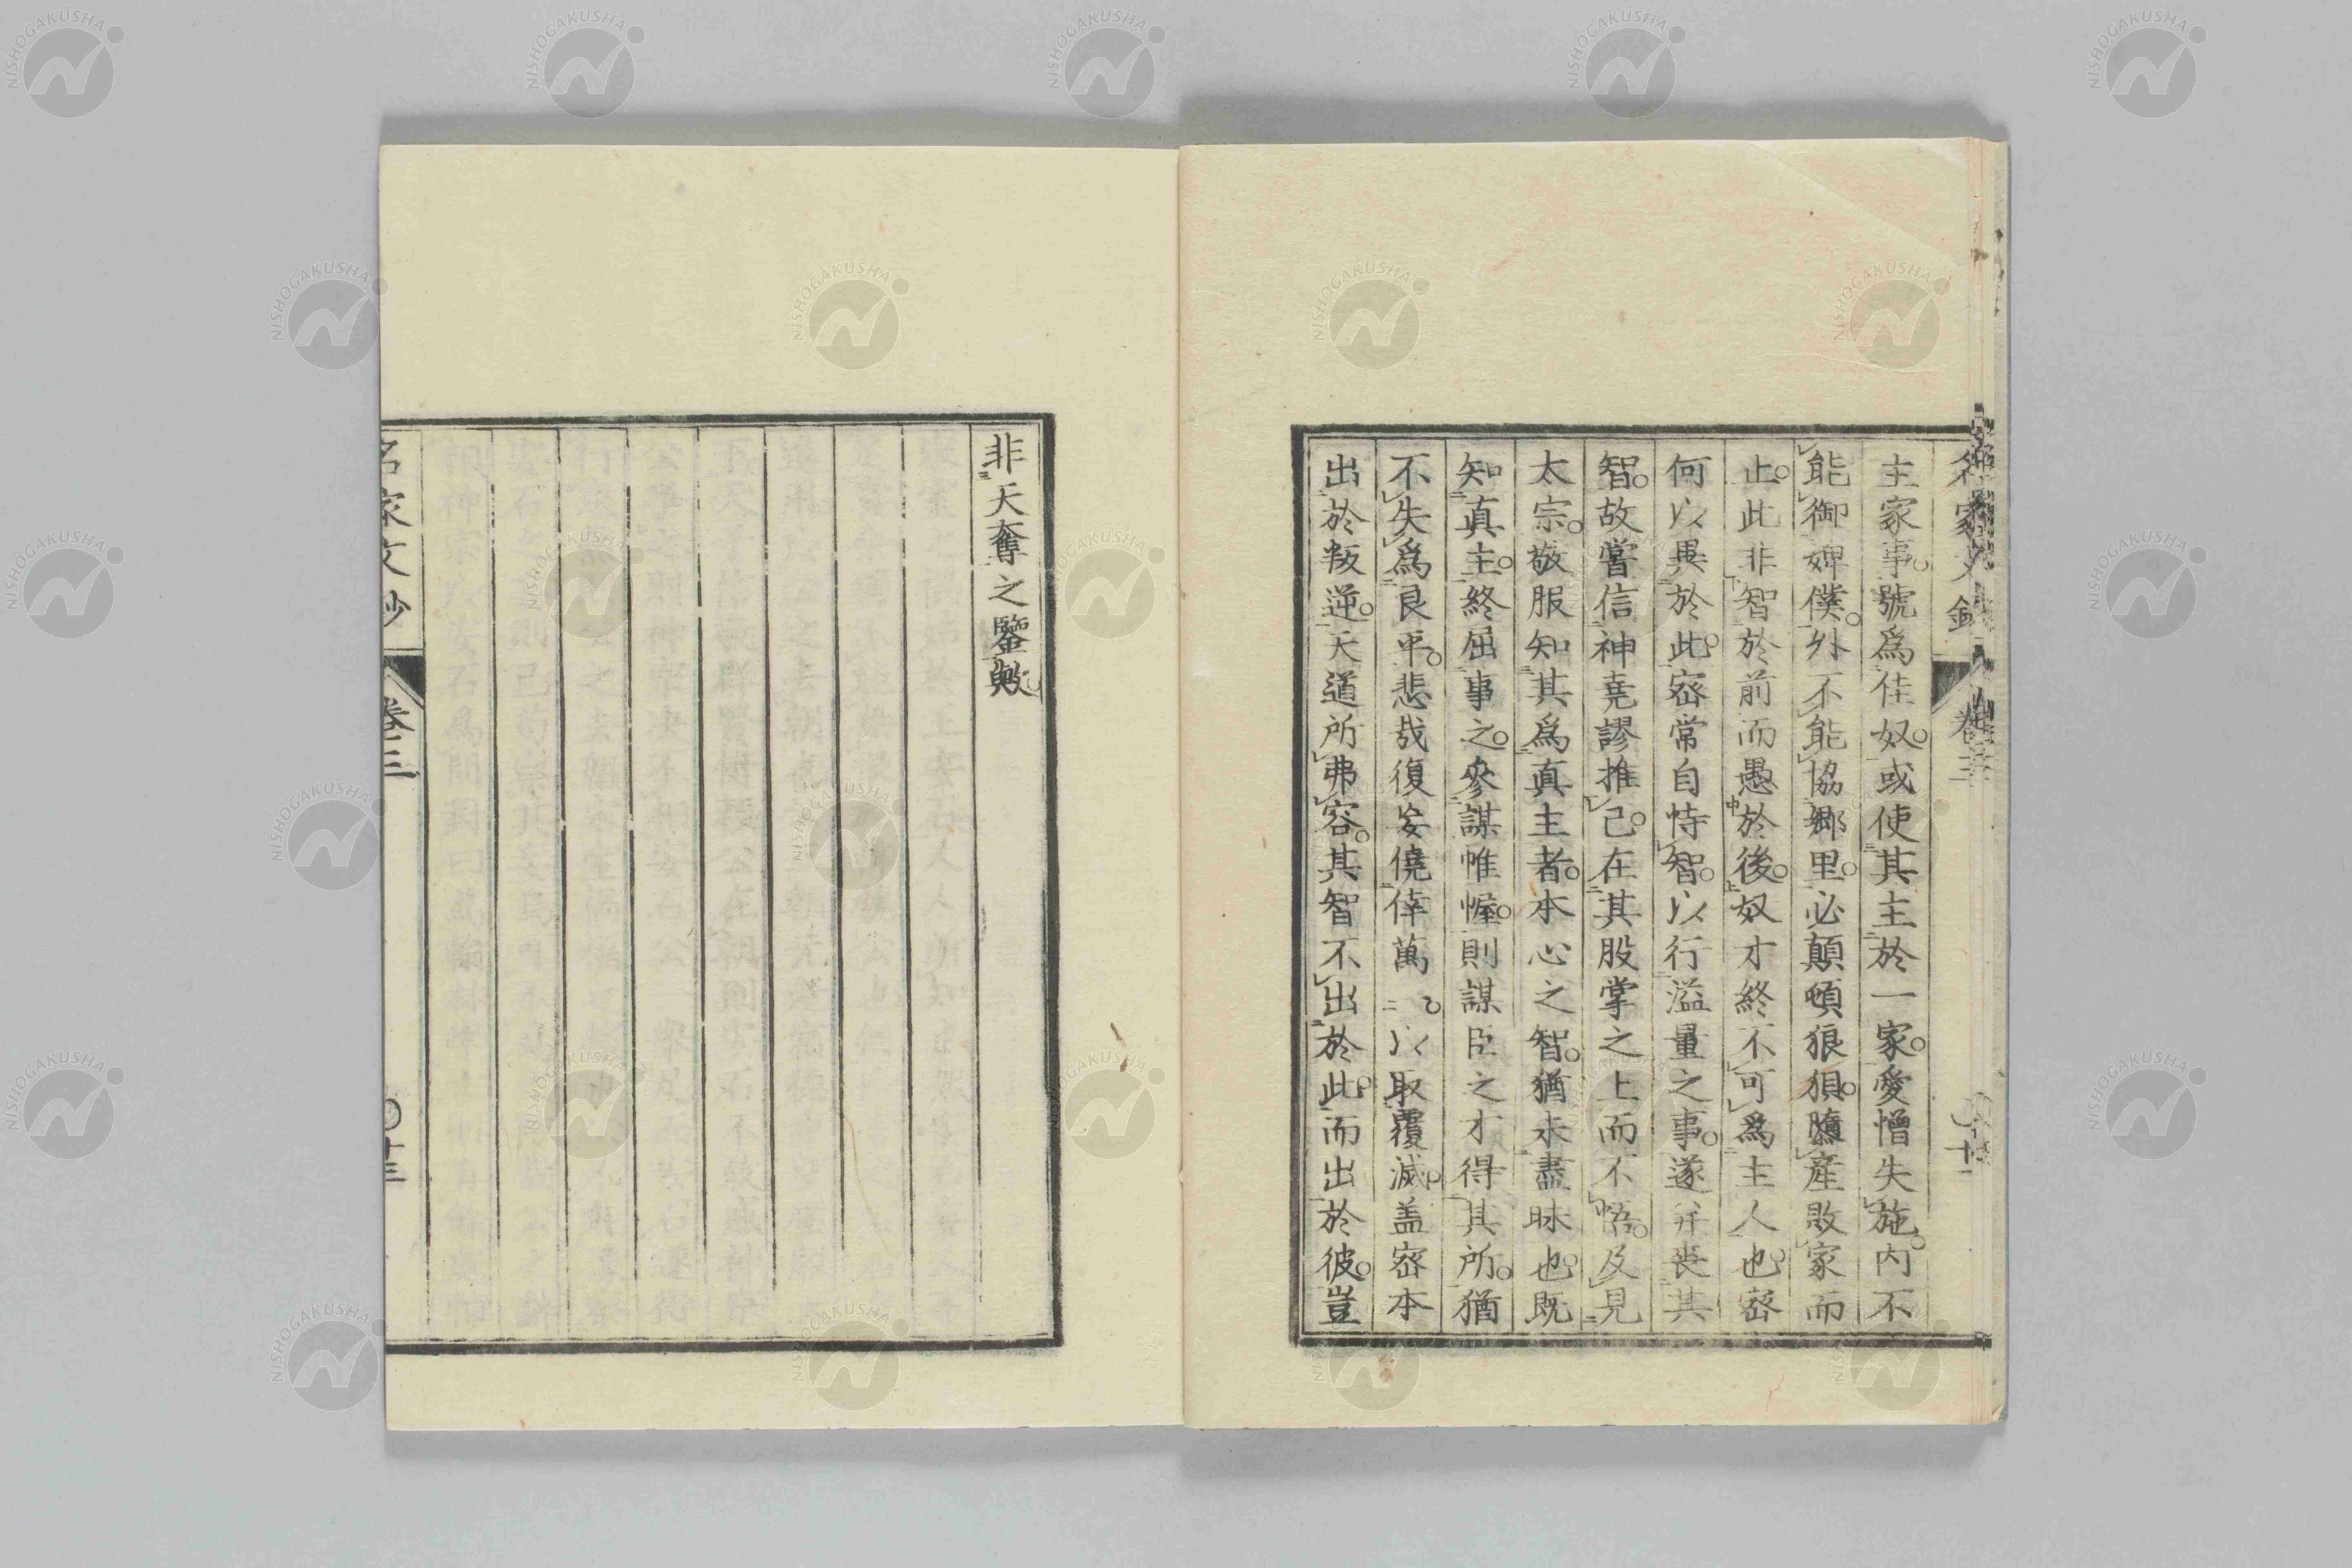 主家事號爲佳奴或使其主於一家愛憎失施内不
能御婢僕外不能協鄉里必顛頓狼狽隳產敗家而
止此非智於前而愚於後奴才終不可爲主人也密
何以異於此密常自恃智以行溢量之事遂并喪其
智故嘗信神堯謬推己在其股掌之上而不悟及見
太宗敬服知其爲真主者本心之智猶未盡昧也既
知真主終屈事之參謀帷幄則謀臣之才得其所猶
不失爲良平悲哉復妄僥倖萬一以取覆滅蓋密本
出於叛逆天道所弗容其智不出於此而出於彼豈
非天奪之鑒歟
名家文鈔
卷三
〇十三
NISHOGAKUSHA